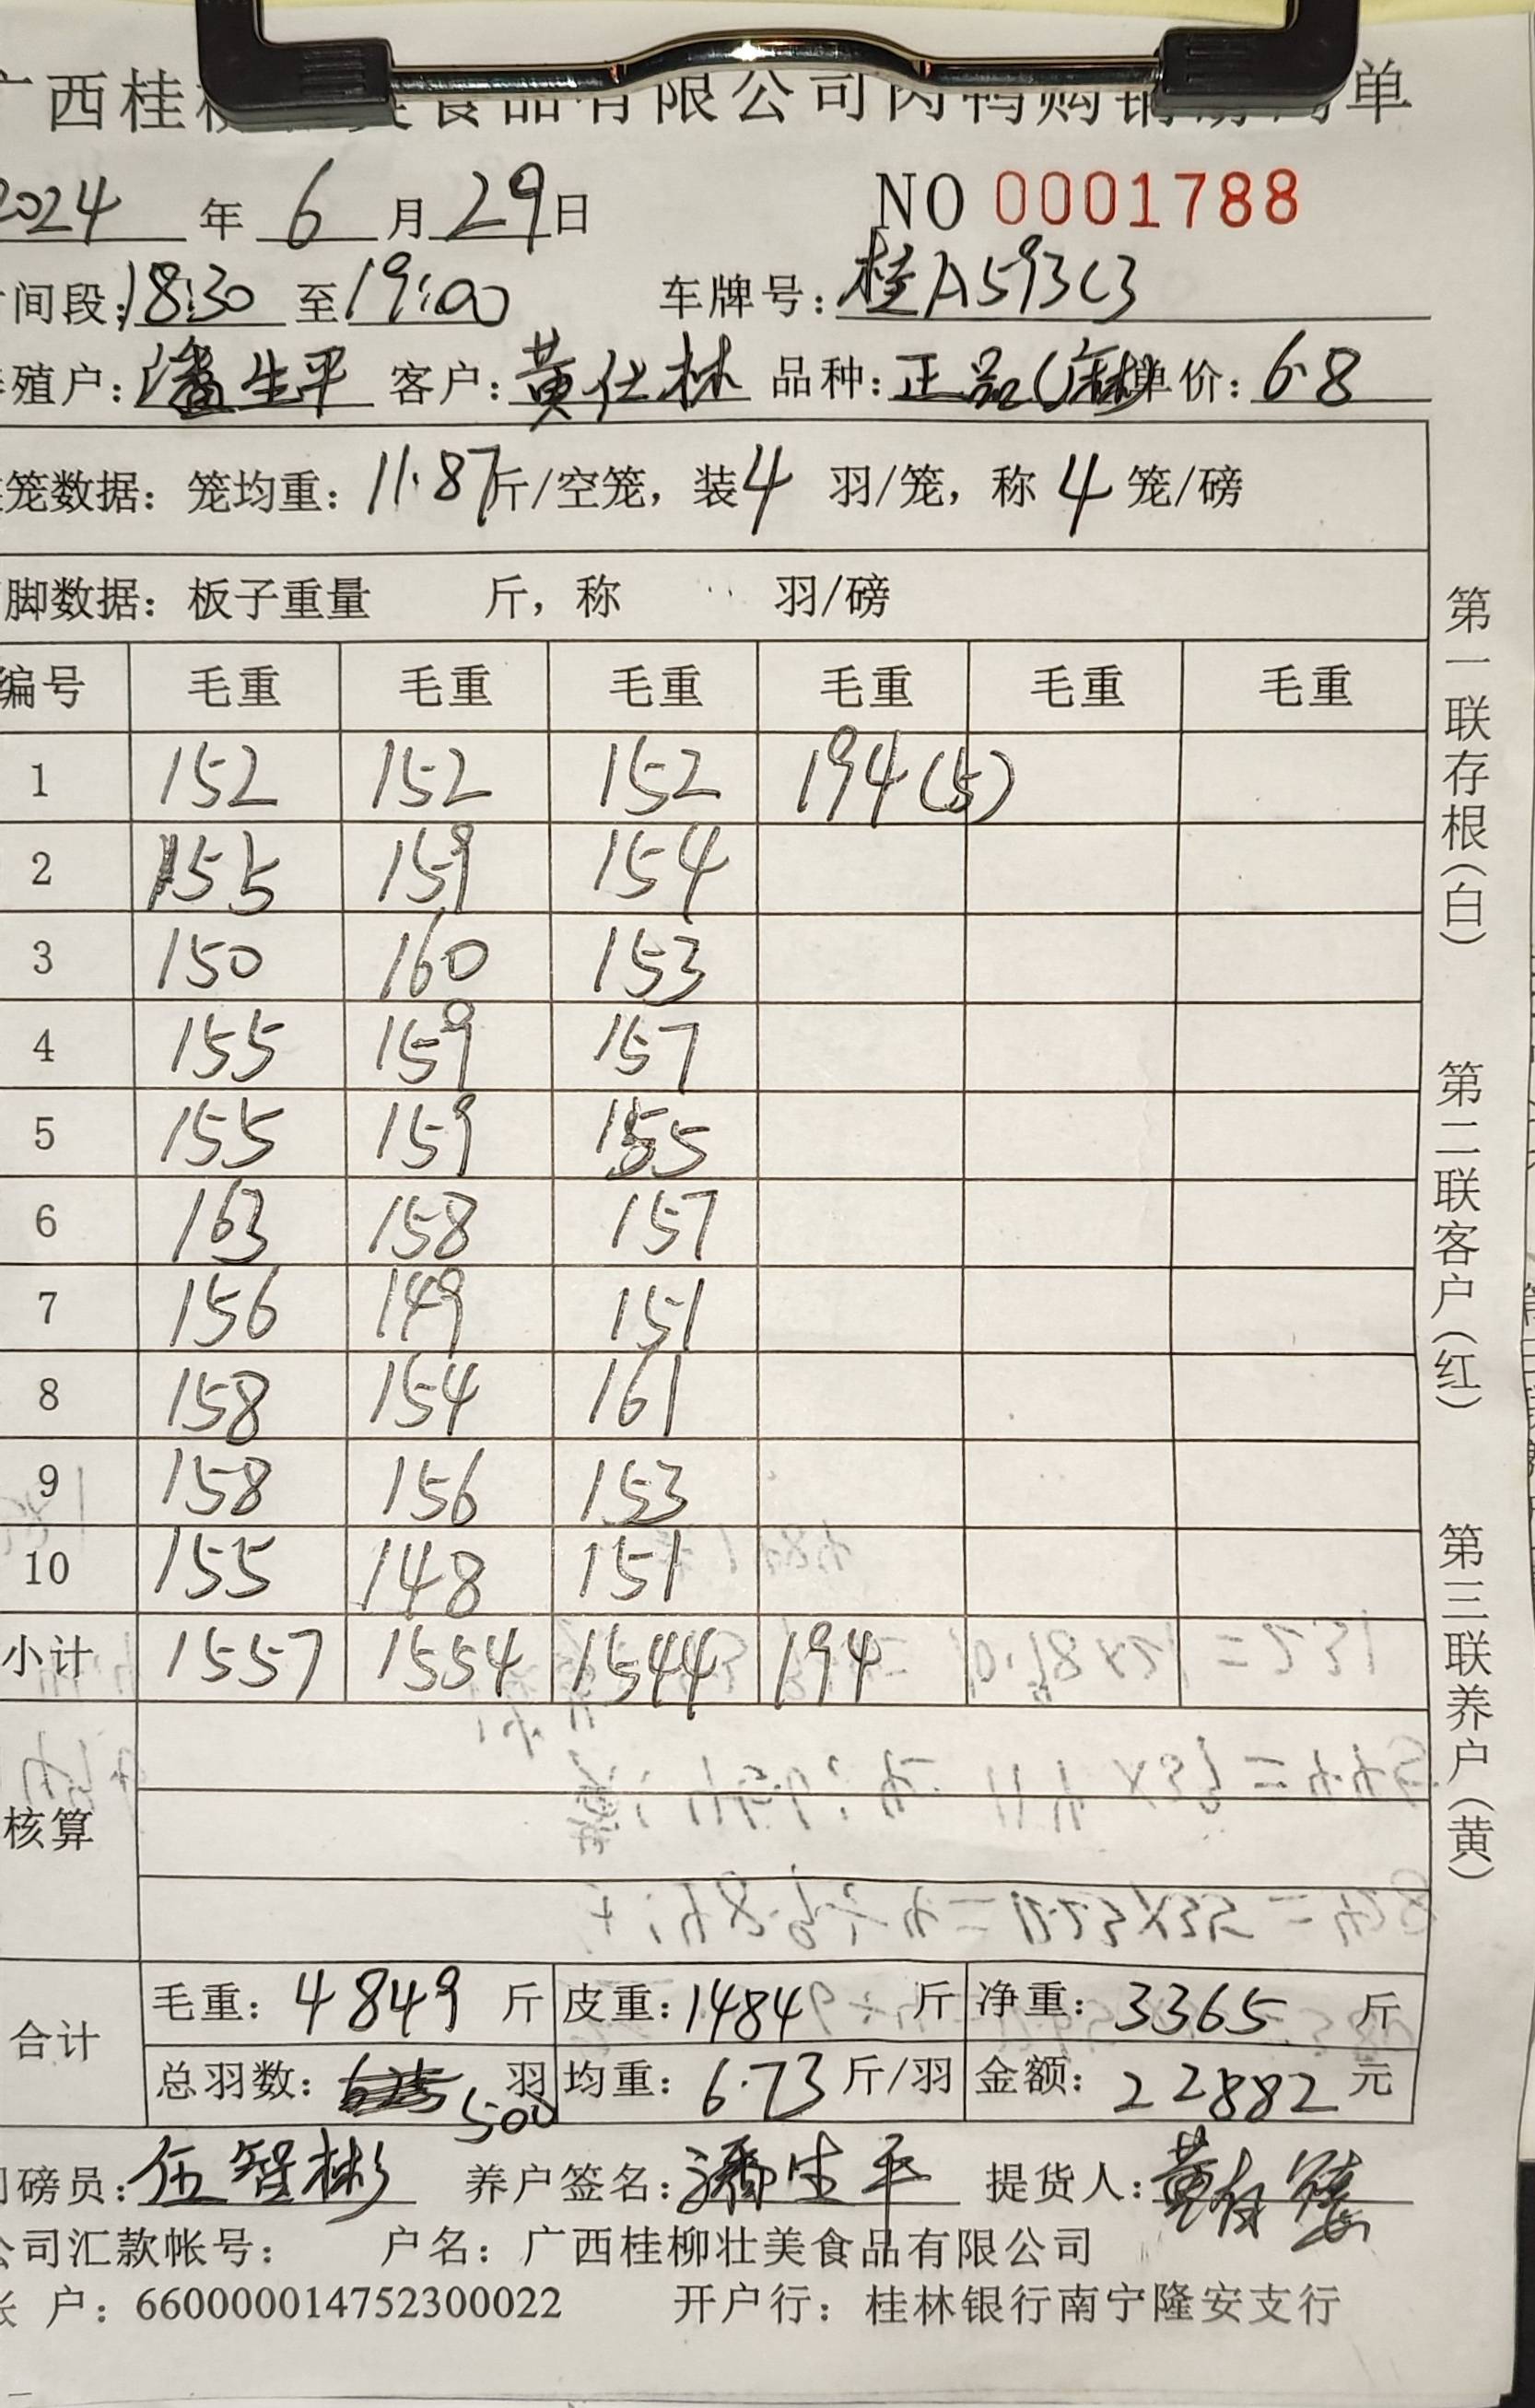 广西桂 美食品有限公司肉鸭购销 单
2024 年 6 月 29 日 NO 0001788
间段:18:30 至 19:00 车牌号:桂A593C3
殖户:潘生平 客户:黄仕林 品种:正品 单价:6.8
笼数据: 笼均重: 11.87斤/空笼, 装4 羽/笼, 称 4 笼/磅
脚数据: 板子重量 斤, 称 羽/磅
编号 毛重 毛重 毛重 毛重 毛重 毛重
1 152 152 152 194(5)
2 155 159 154
3 150 160 153
4 155 159 157
5 155 159 155
6 163 158 157
7 156 149 151
8 158 154 161
9 158 156 153
10 155 148 151
小计 1557 1554 1544 194
核算
合计 毛重: 4849 斤 皮重: 1484 斤 净重: 3365 斤
总羽数: 500 羽 均重: 6.73 斤/羽 金额: 22882 元
磅员: 伍智彬 养户签名: 潘生平 提货人: 黄
公司汇款帐号: 户名: 广西桂柳壮美食品有限公司
户: 660000014752300022 开户行: 桂林银行南宁隆安支行
第一联存根(白)
第二联客户(红)
第三联养户(黄)